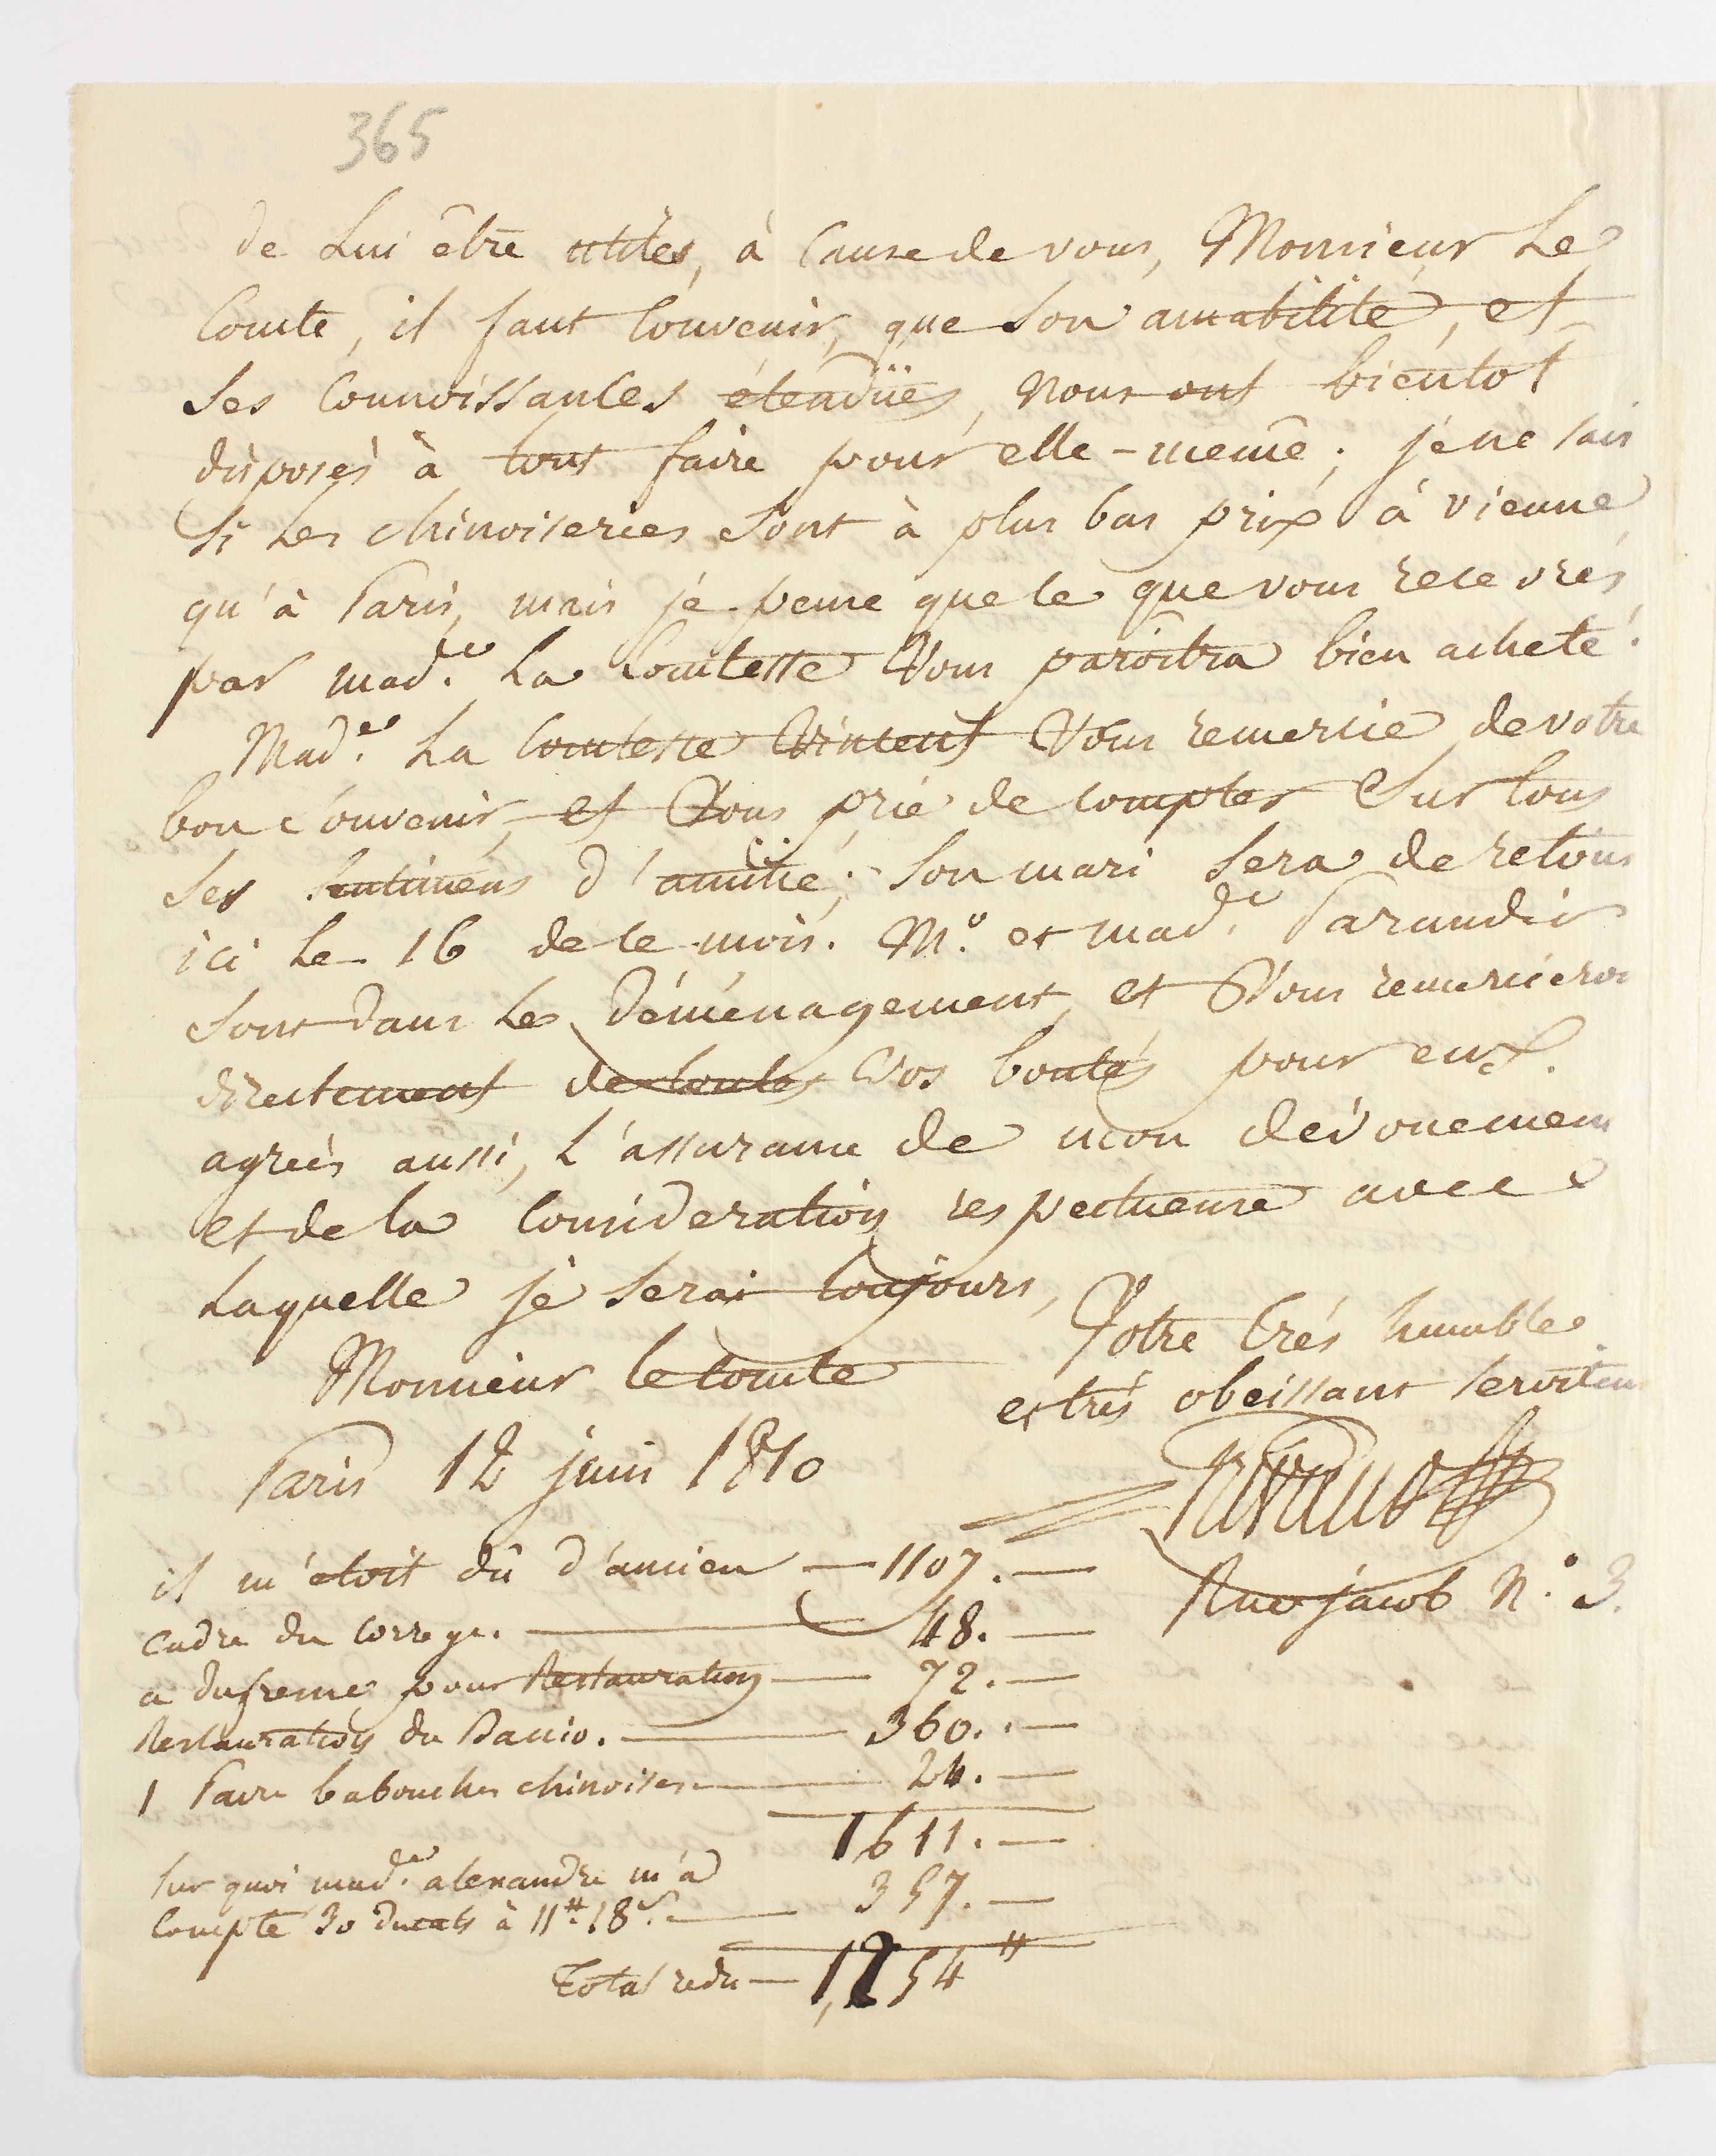 365
de Lui être utiles, à Cause de vous, Monsieur Le
Comte, il faut Convenir, que Son amabilité, et
Ses Connoissances étendües, nous ont bientot
disposés à tout faire pour elle-même; je ne sais
si Les chinoiseries Sont à plus bas prix à vienne
qu'à Paris, mais je pense que ce que vous recevrés
par mad.e La Comtesse Vous paroitra bien acheté.
Mad.e La Comtesse Vincent Vous remercie de votre
bon Souvenir, et Vous prie de compter Sur tous
Ses Sentimens d'amitié; Son mari Sera de retour
ici Le 16 de ce mois. M.r et mad.e Parandier
Sont dans Le Déménagement, et Vous remercieron
directement de toutes Vos bontés pour eux.
agreés aussi, L'assurance de mon dévouemen
et de la Consideration respectueuse avec
Laquelle je Serai toujours,
Monsieur le Comte
Votre très humble
et très obeissant Serviteur
Paris 12 juin 1810
Rue jacob N.o 3.
il m'étoit dû d'ancien — 1107. —
Cadre du Correge. — 48. —
a Dufresne pour Restauration — 72. —
Restauration du Baccio. — 360. —
1 Paire babouches chinoises — 24. —
1611. —
Sur quoi mad.e alexandre m'a
Compté 30 ducats à 11# 18s. — 357. —
Total redu — 1254#